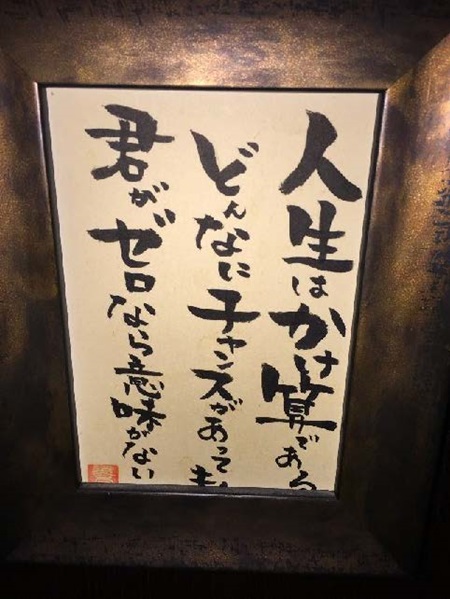 人生はかけ算である
どんなにチャンスがあっても
君がゼロなら意味がない